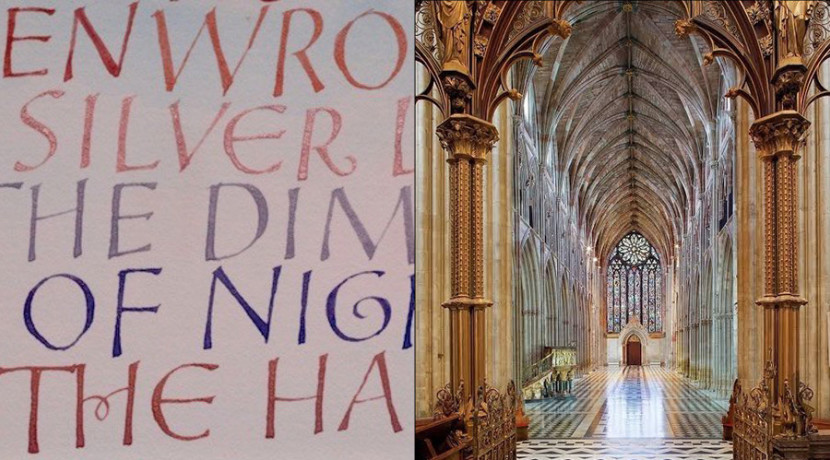 ENWRO
SILVER L
THE DIM
OF NIGH
THE HA